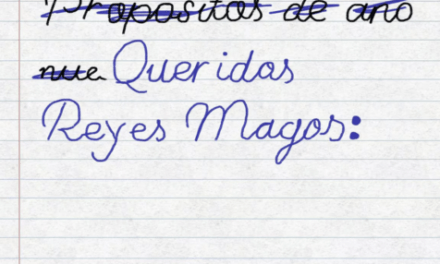 Propositos de año
nue Queridos
Reyes Magos: